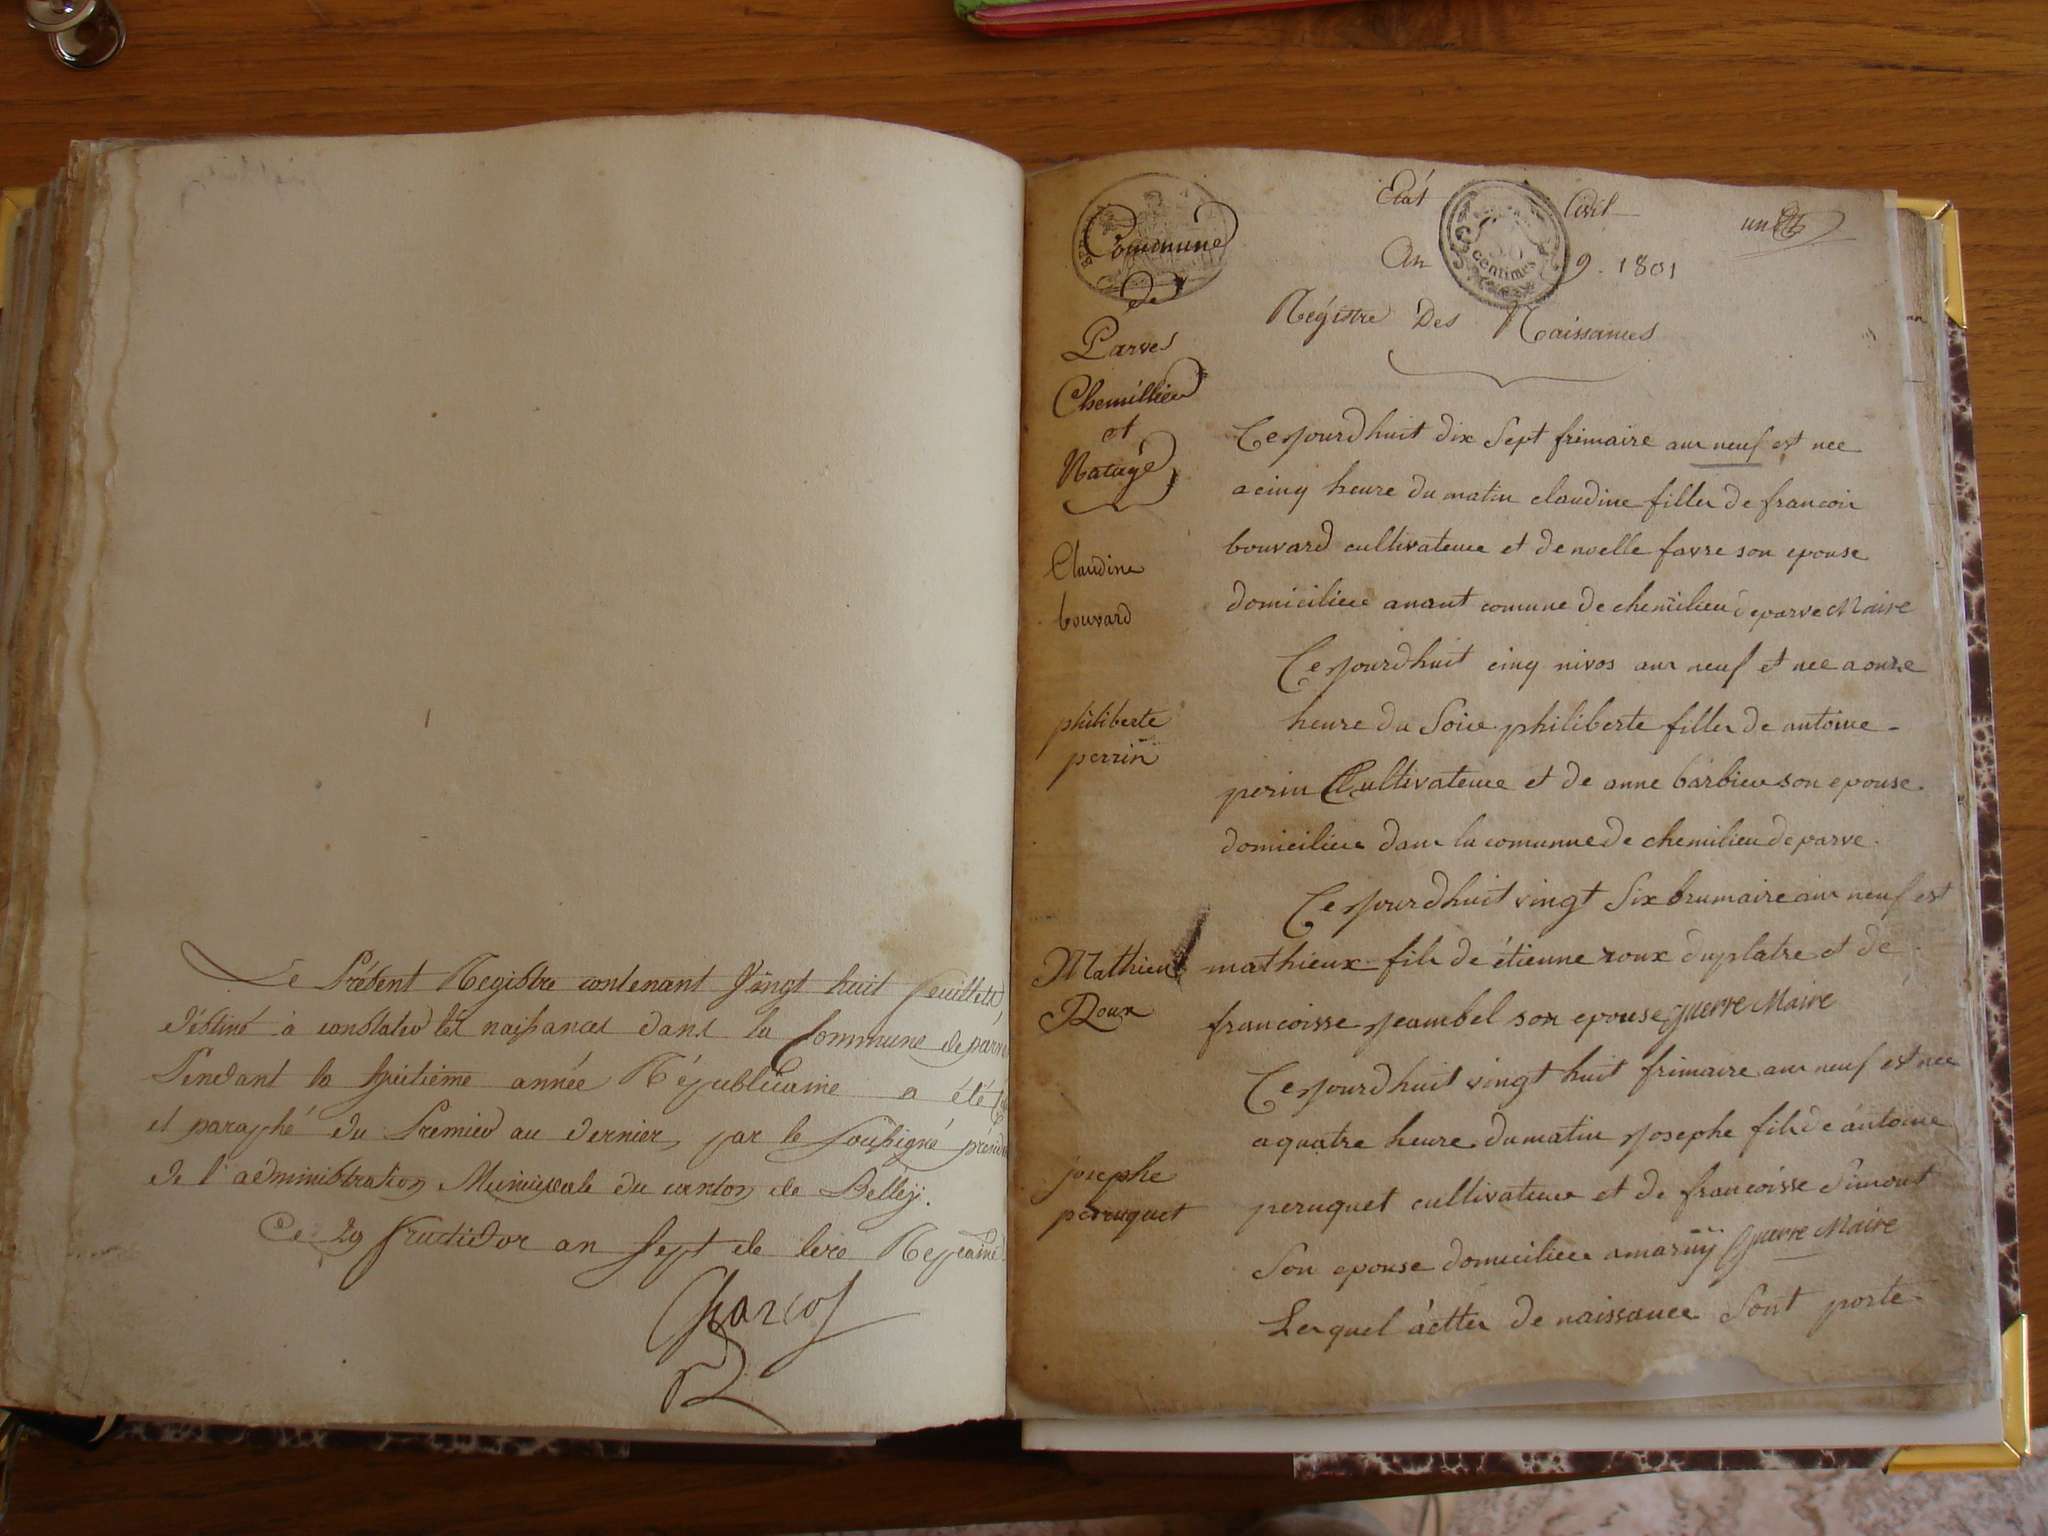 Le Présent Registre contenant Vingt huit feuillets
déstiné à constater les naissances dans la Commune de parve
Pendant la huitième année Républicaine a été
et paraphé du Premier au dernier, par le Soussigné présid
de l'administration Municipale du canton de Belley.
Ce 29 fructidor an Sept de l'ere Repcaine
Commune
de
Parves
Chemillieu
et
Natage
Etat Civil
un
An 9. 1801
centimes
Régistre Des Naissances
Claudine
bouvard
Cejourdhuit dix Sept frimaire anr neuf est nee
a cinq heure du matin claudine filler de francoir
bouvard cultivateur et de noelle favre son epouse
domicilier anant comune de chemilieu de parve Maire
philiberte
perrin
Cejourdhuit cinq nivos anr neuf et nee a onze
heure du Soir philiberte filler de antoine
perin Cultivateur et de anne barbier son epouse
domicilier danr la comunne de chemilieu de parve.
Mathieu
Roux
Cejourdhuit vingt Six brumaire anr neuf est
mathieux filr de étienne roux du platre et de
francoisse jeambel son epouse guerre Maire
josephe
peruquet
Cejourdhuit vingt huit frimaire anr neuf est nee
a quatre heure du matin josephe filr de antoine
peruquet cultivateur et de francoisse Simont
Son epouse domicilier a guerre Maire
Lerquel actter de naissance Sont porte